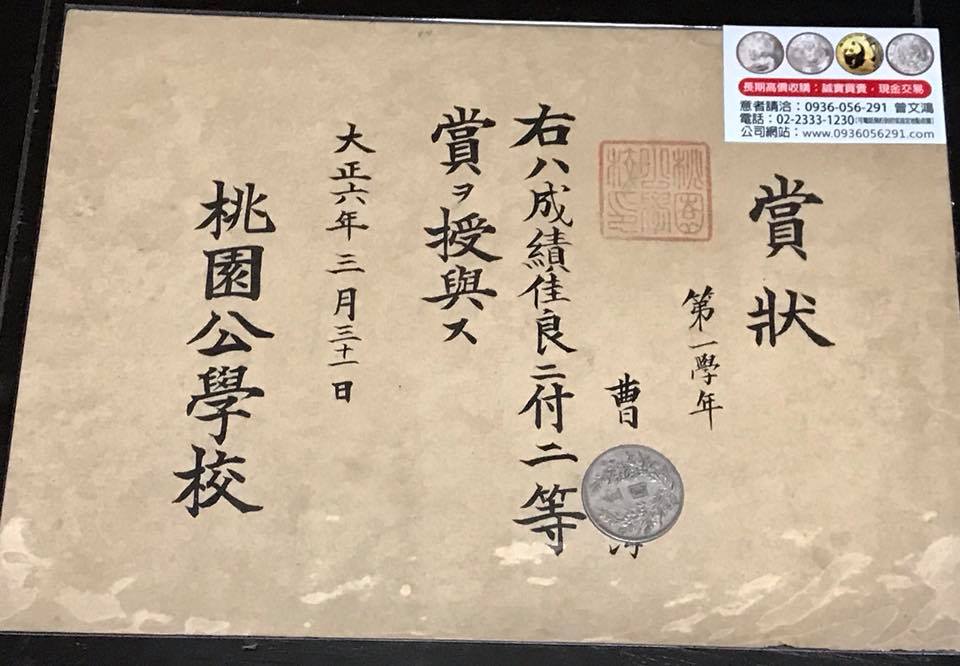 賞狀
第一學年
曹
右ハ成績佳良ニ付二等
賞ヲ授與ス
大正六年三月三十一日
桃園公學校
桃園公學校印
長期高價收購：誠實買賣，現金交易
意者請洽：0936-056-291 曾文鴻
電話：02-2333-1230
公司網站：www.0936056291.com